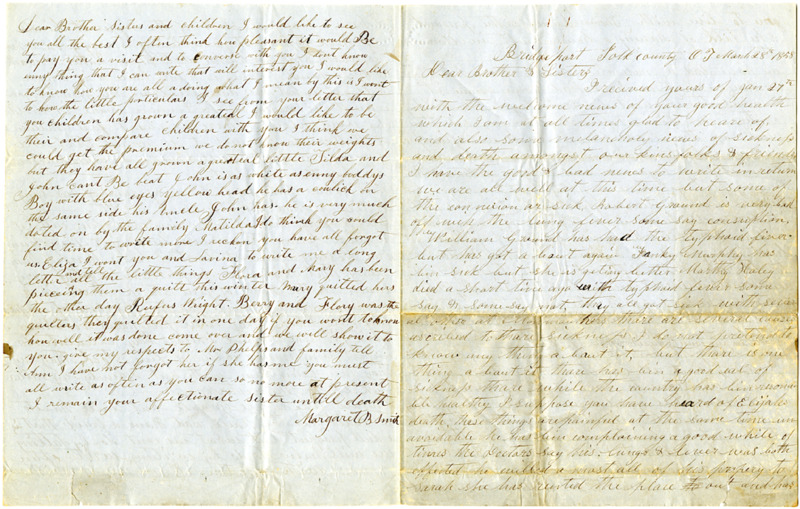 Dear Brother Sisters and children I would like to see
you all the best I often think how pleasant it would Be
to pay you a visit and to converse with you I dont know
enny thing that I can write that will interest you I would like
to know how you are all a doing what I mean by this is I wont
to know the little perticulars I see from your letter that
you children has grown a greateal I would like to be
their and compare children with you I think we
could get the premium we do not know their weights
but they have all grown a greateal little Tilda and
John cant Be beat John is as white as enny buddys
Boy with blue eyes yellow head he has a cowlick on
the same side his uncle John has. he is very much
doted on by the family Matilda I do think you could
find time to write more I reckon you have all forgot
us. Eliza I wont you and Lavina to write me a long
letter and tell all the little things Flora and Mary has ben
pieceing them a quilt this winter Mary quilted hers
the other day Rufus Wright. Berry and Flory was the
quilters they quilted it in one day if you wont to know
how well it was done come over and we will show it to
you. give my respects to Mr Phelps and family tell
Ann I have not forgot her if she has me you must
all write as often as you can so no more at present
I remain your affectionate sister untill death
Margaret B Smith
Bridgeport county March 28th
Dear Brother & Sisters
I recieved yours of Jan 27th
with the welcome news of your good health
which I am at all times glad to heare of
and also some melancholy news of sickness
and death amongst our kinsfolks & friends
I have the good & bad news to write in return
we are all well at this time but some of
the are sick Robert Ground is very bad
off with the lung fever some say consumption
William Ground has had the typhoid fever
but has got a bout again Murphy has
bin sick but she is geting better Martha
died a short time ago with typhoid fever some
say & some say not, they all got sick
at there are several
ascribed to thare sickness I do not pretend to
know any thing a bout it, but thare is one
thing a bout it thare has bin a good eal of
sickness thare while the country has bin
healthy I suppose you have heard of Elijahs
death, these things are painful at the same time un
avoidable he has bin complaining a good while of
times the Doctors say his lungs & liver was both
affected he willed a most all of his property to
Sarah she has rented the place out and has